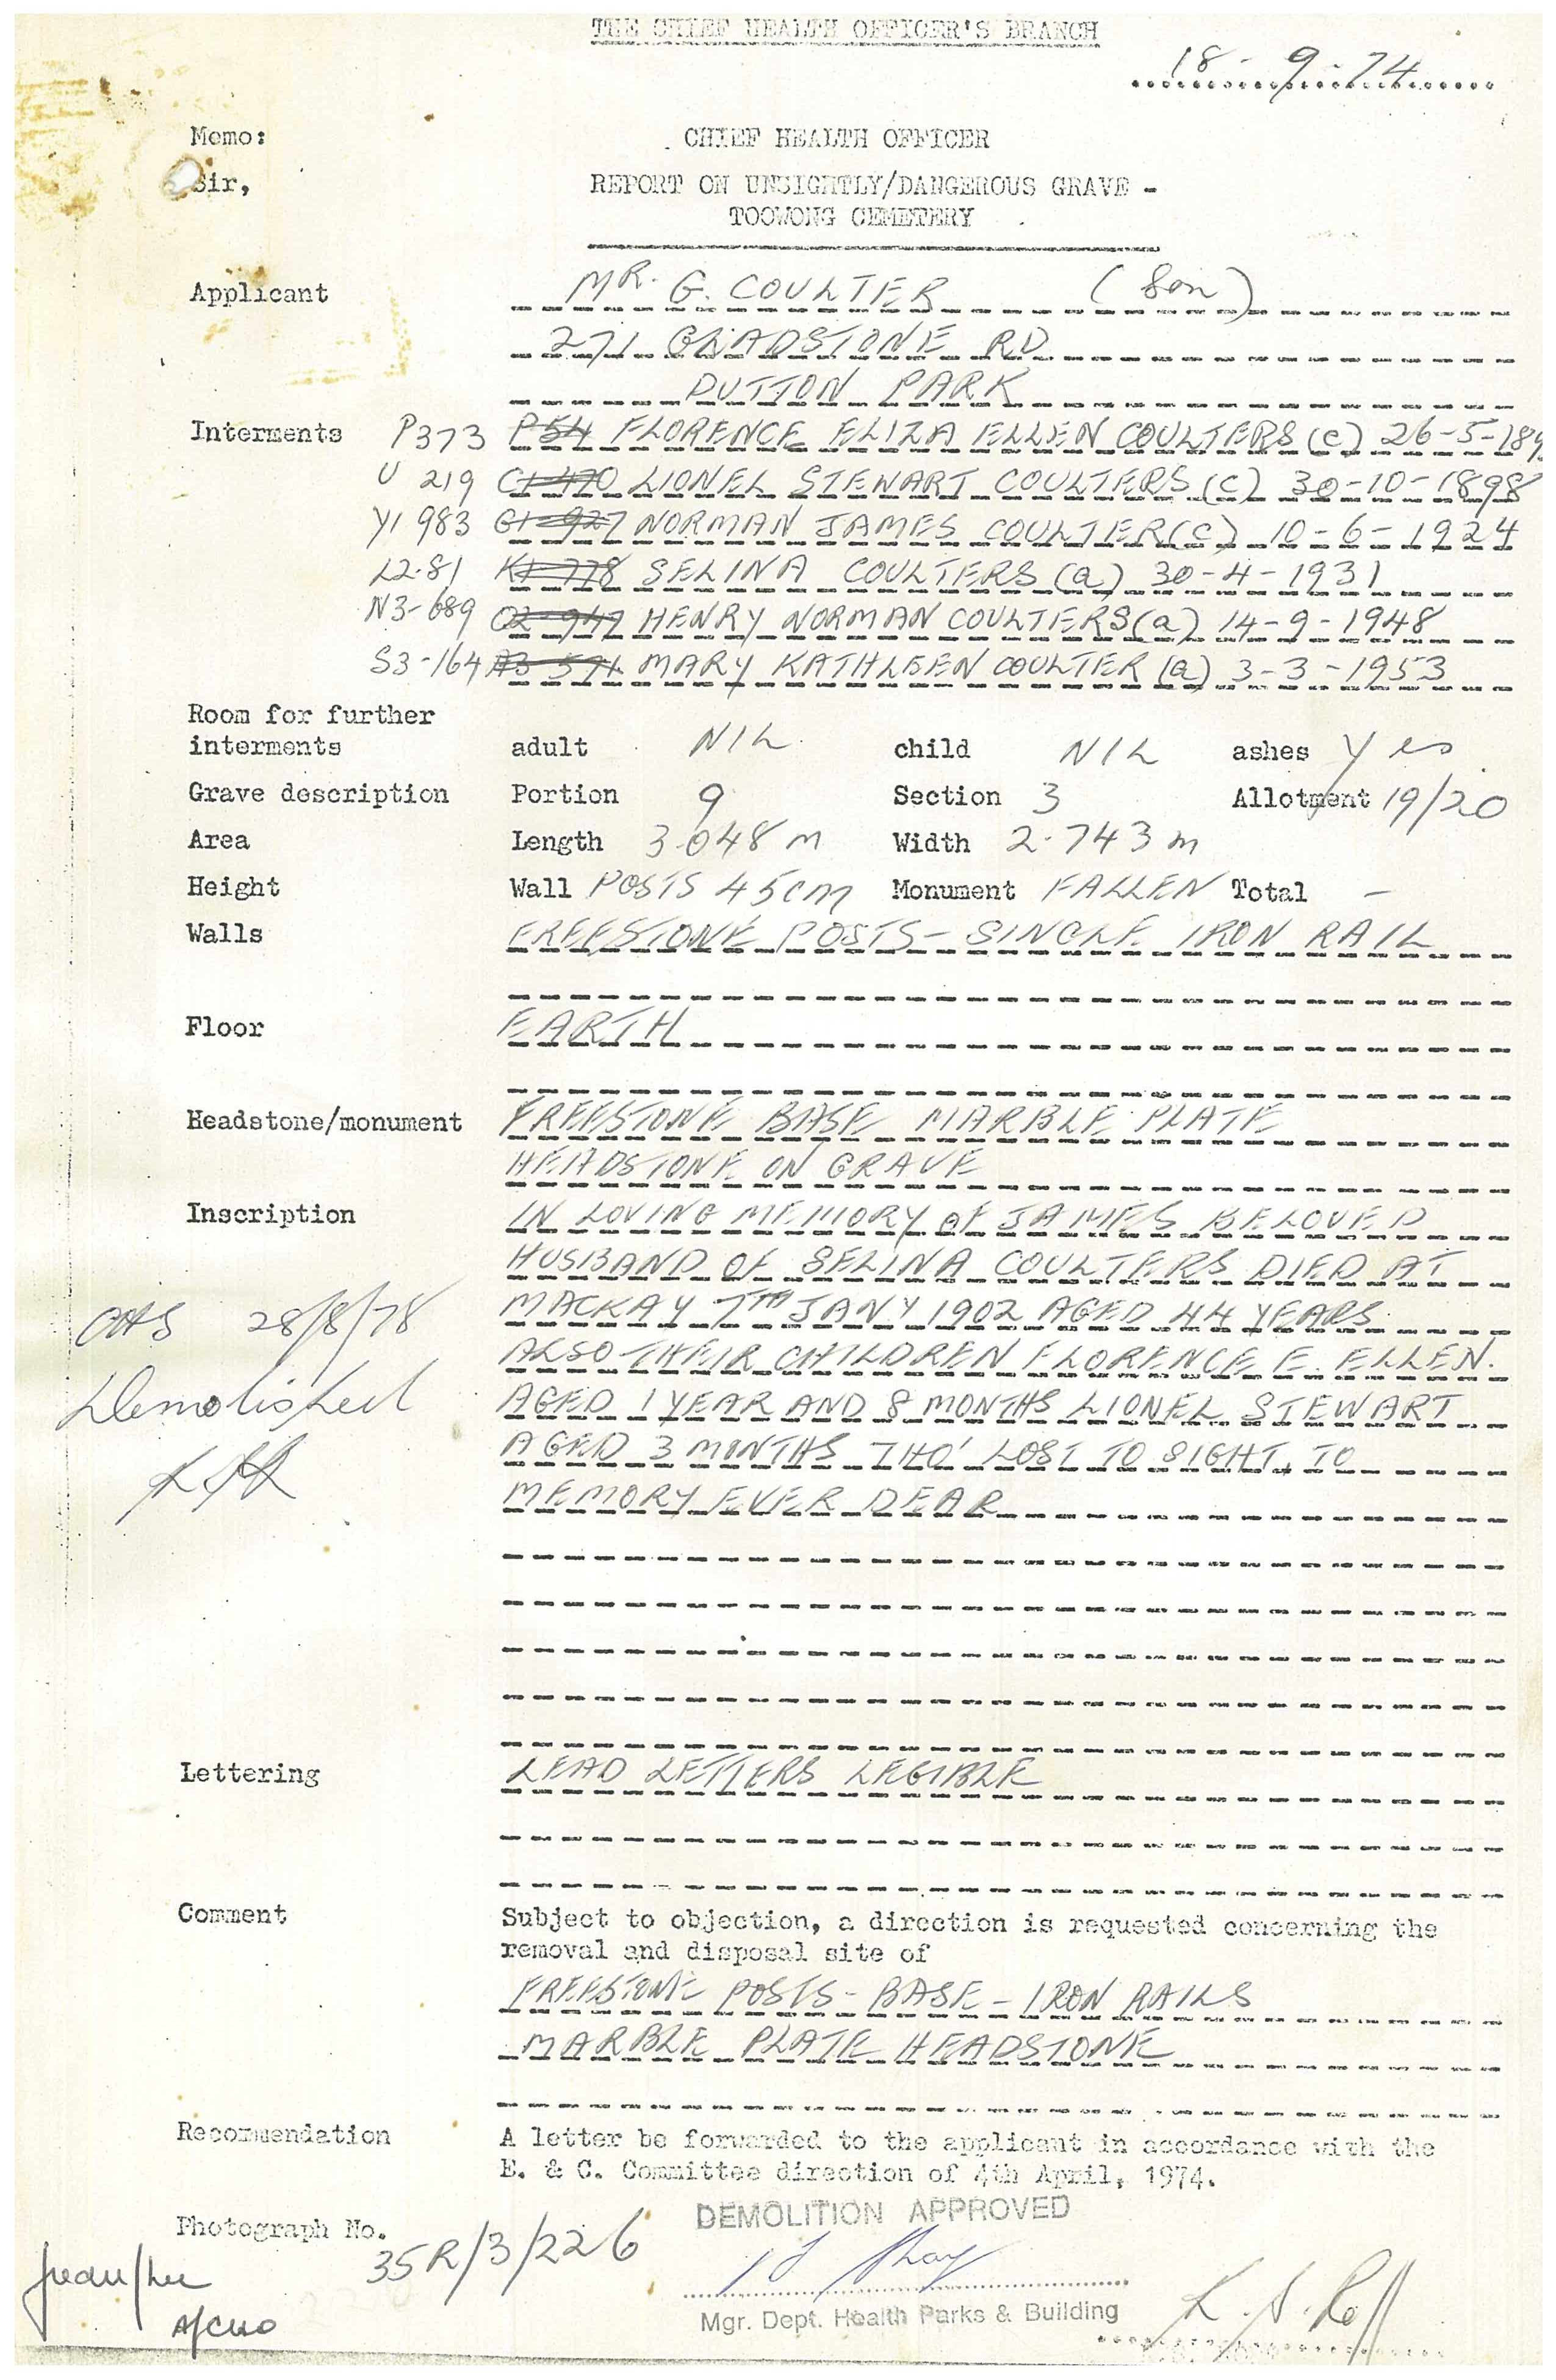 THE CHIEF HEALTH OFFICER'S BRANCH
18-9-74
Memo: CHIEF HEALTH OFFICER
Sir, REPORT ON UNSIGHTLY/DANGEROUS GRAVE -
TOOWONG CEMETERY
Applicant MR. G. COULTER (Son)
271 GLADSTONE RD
DUTTON PARK
Interments P373 P54 FLORENCE ELIZA ELLEN COULTERS (c) 26-5-189
U 219 C1-470 LIONEL STEWART COULTERS (C) 30-10-1898
Y1 983 G1-927 NORMAN JAMES COULTER (C) 10-6-1924
L2-81 K1-778 SELINA COULTERS (a) 30-4-1931
N3-689 O2-947 HENRY NORMAN COULTERS (a) 14-9-1948
S3-164 A3-591 MARY KATHLEEN COULTER (a) 3-3-1953
Room for further
interments adult NIL child NIL ashes Yes
Grave description Portion 9 Section 3 Allotment 19/20
Area Length 3.048 m Width 2.743 m
Height Wall POSTS 45cm Monument FALLEN Total -
Walls FREESTONE POSTS - SINGLE IRON RAIL
Floor EARTH
Headstone/monument FREESTONE BASE MARBLE PLATE
HEADSTONE ON GRAVE
Inscription IN LOVING MEMORY OF JAMES BELOVED
HUSBAND OF SELINA COULTERS DIED AT
MACKAY 7TH JANY 1902 AGED 44 YEARS
28/8/78
ALSO THEIR CHILDREN FLORENCE E. ELLEN.
Demolished AGED 1 YEAR AND 8 MONTHS LIONEL STEWART
AGED 3 MONTHS THO' LOST TO SIGHT, TO
MEMORY EVER DEAR
Lettering LEAD LETTERS LEGIBLE
Comment Subject to objection, a direction is requested concerning the
removal and disposal site of
FREESTONE POSTS - BASE - IRON RAILS
MARBLE PLATE HEADSTONE
Recommendation A letter be forwarded to the applicant in accordance with the
E. & C. Committee direction of 4th April, 1974.
DEMOLITION APPROVED
Photograph No. 35R/3/226
Mgr. Dept. Health Parks & Building
A/CHO